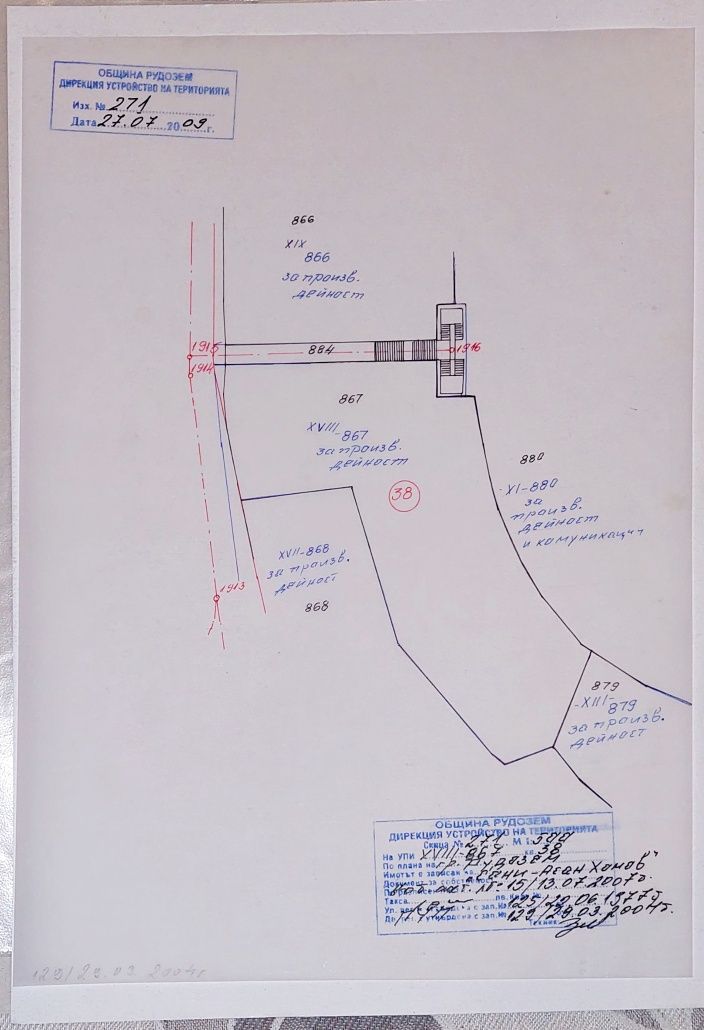 ОБЩИНА РУДОЗЕМ
ДИРЕКЦИЯ УСТРОЙСТВО НА ТЕРИТОРИЯТА
Изх. № 271
Дата 27.07 2009 г.
866
XIX
866
за произв.
дейност
1915
884
1916
1914
867
XVIII-867
за произв.
дейност
880
XI-880
за
произв.
дейност
и комуникации
38
XVII-868
за произв.
дейност
1913
868
879
-XIII-879
за произв.
дейност
ОБЩИНА РУДОЗЕМ
ДИРЕКЦИЯ УСТРОЙСТВО НА ТЕРИТОРИЯТА
Скица № 271 М 1: 500
На УПИ XVIII-867 кв. 38
По плана на гр. Рудозем
Имотът е записан на "Рани-Асан Хонов"
Документ за собственост
нот. акт. № 15/13.07.2007г.
Такса
125/20.06.1977г.
утвърдена с зап. № 129/29.03.2004г.
Техник:
129/29.03.2004г